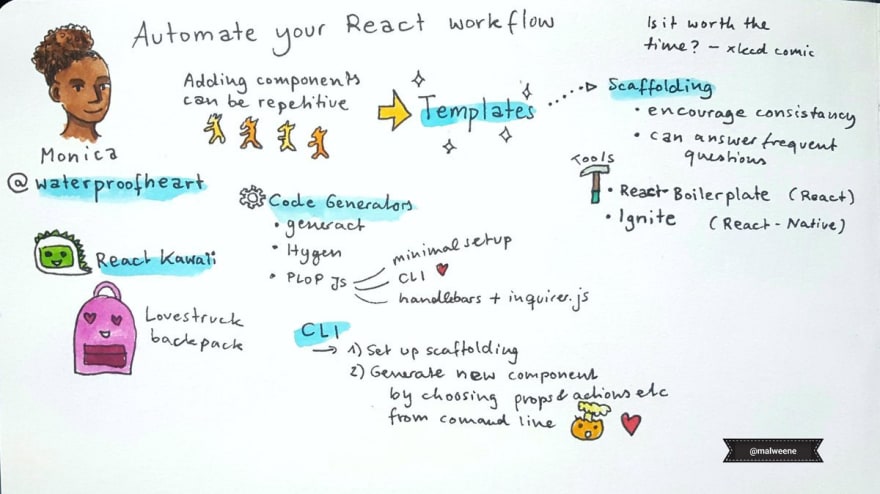 Automate your React workflow
Is it worth the
time? – xkcd comic
Adding components
can be repetitive
Templates
Scaffolding
• encourage consistancy
• can answer frequent
questions
Tools
• React-Boilerplate (React)
• Ignite (React-Native)
Monica
@waterproofheart
Code Generators
• generact
• Hygen
• PLOP JS
minimal setup
CLI
handlebars + inquirer.js
React Kawaii
Lovestruck
backpack
CLI
1) Set up scaffolding
2) Generate new component
by choosing props & actions etc
from comand line
@malweene